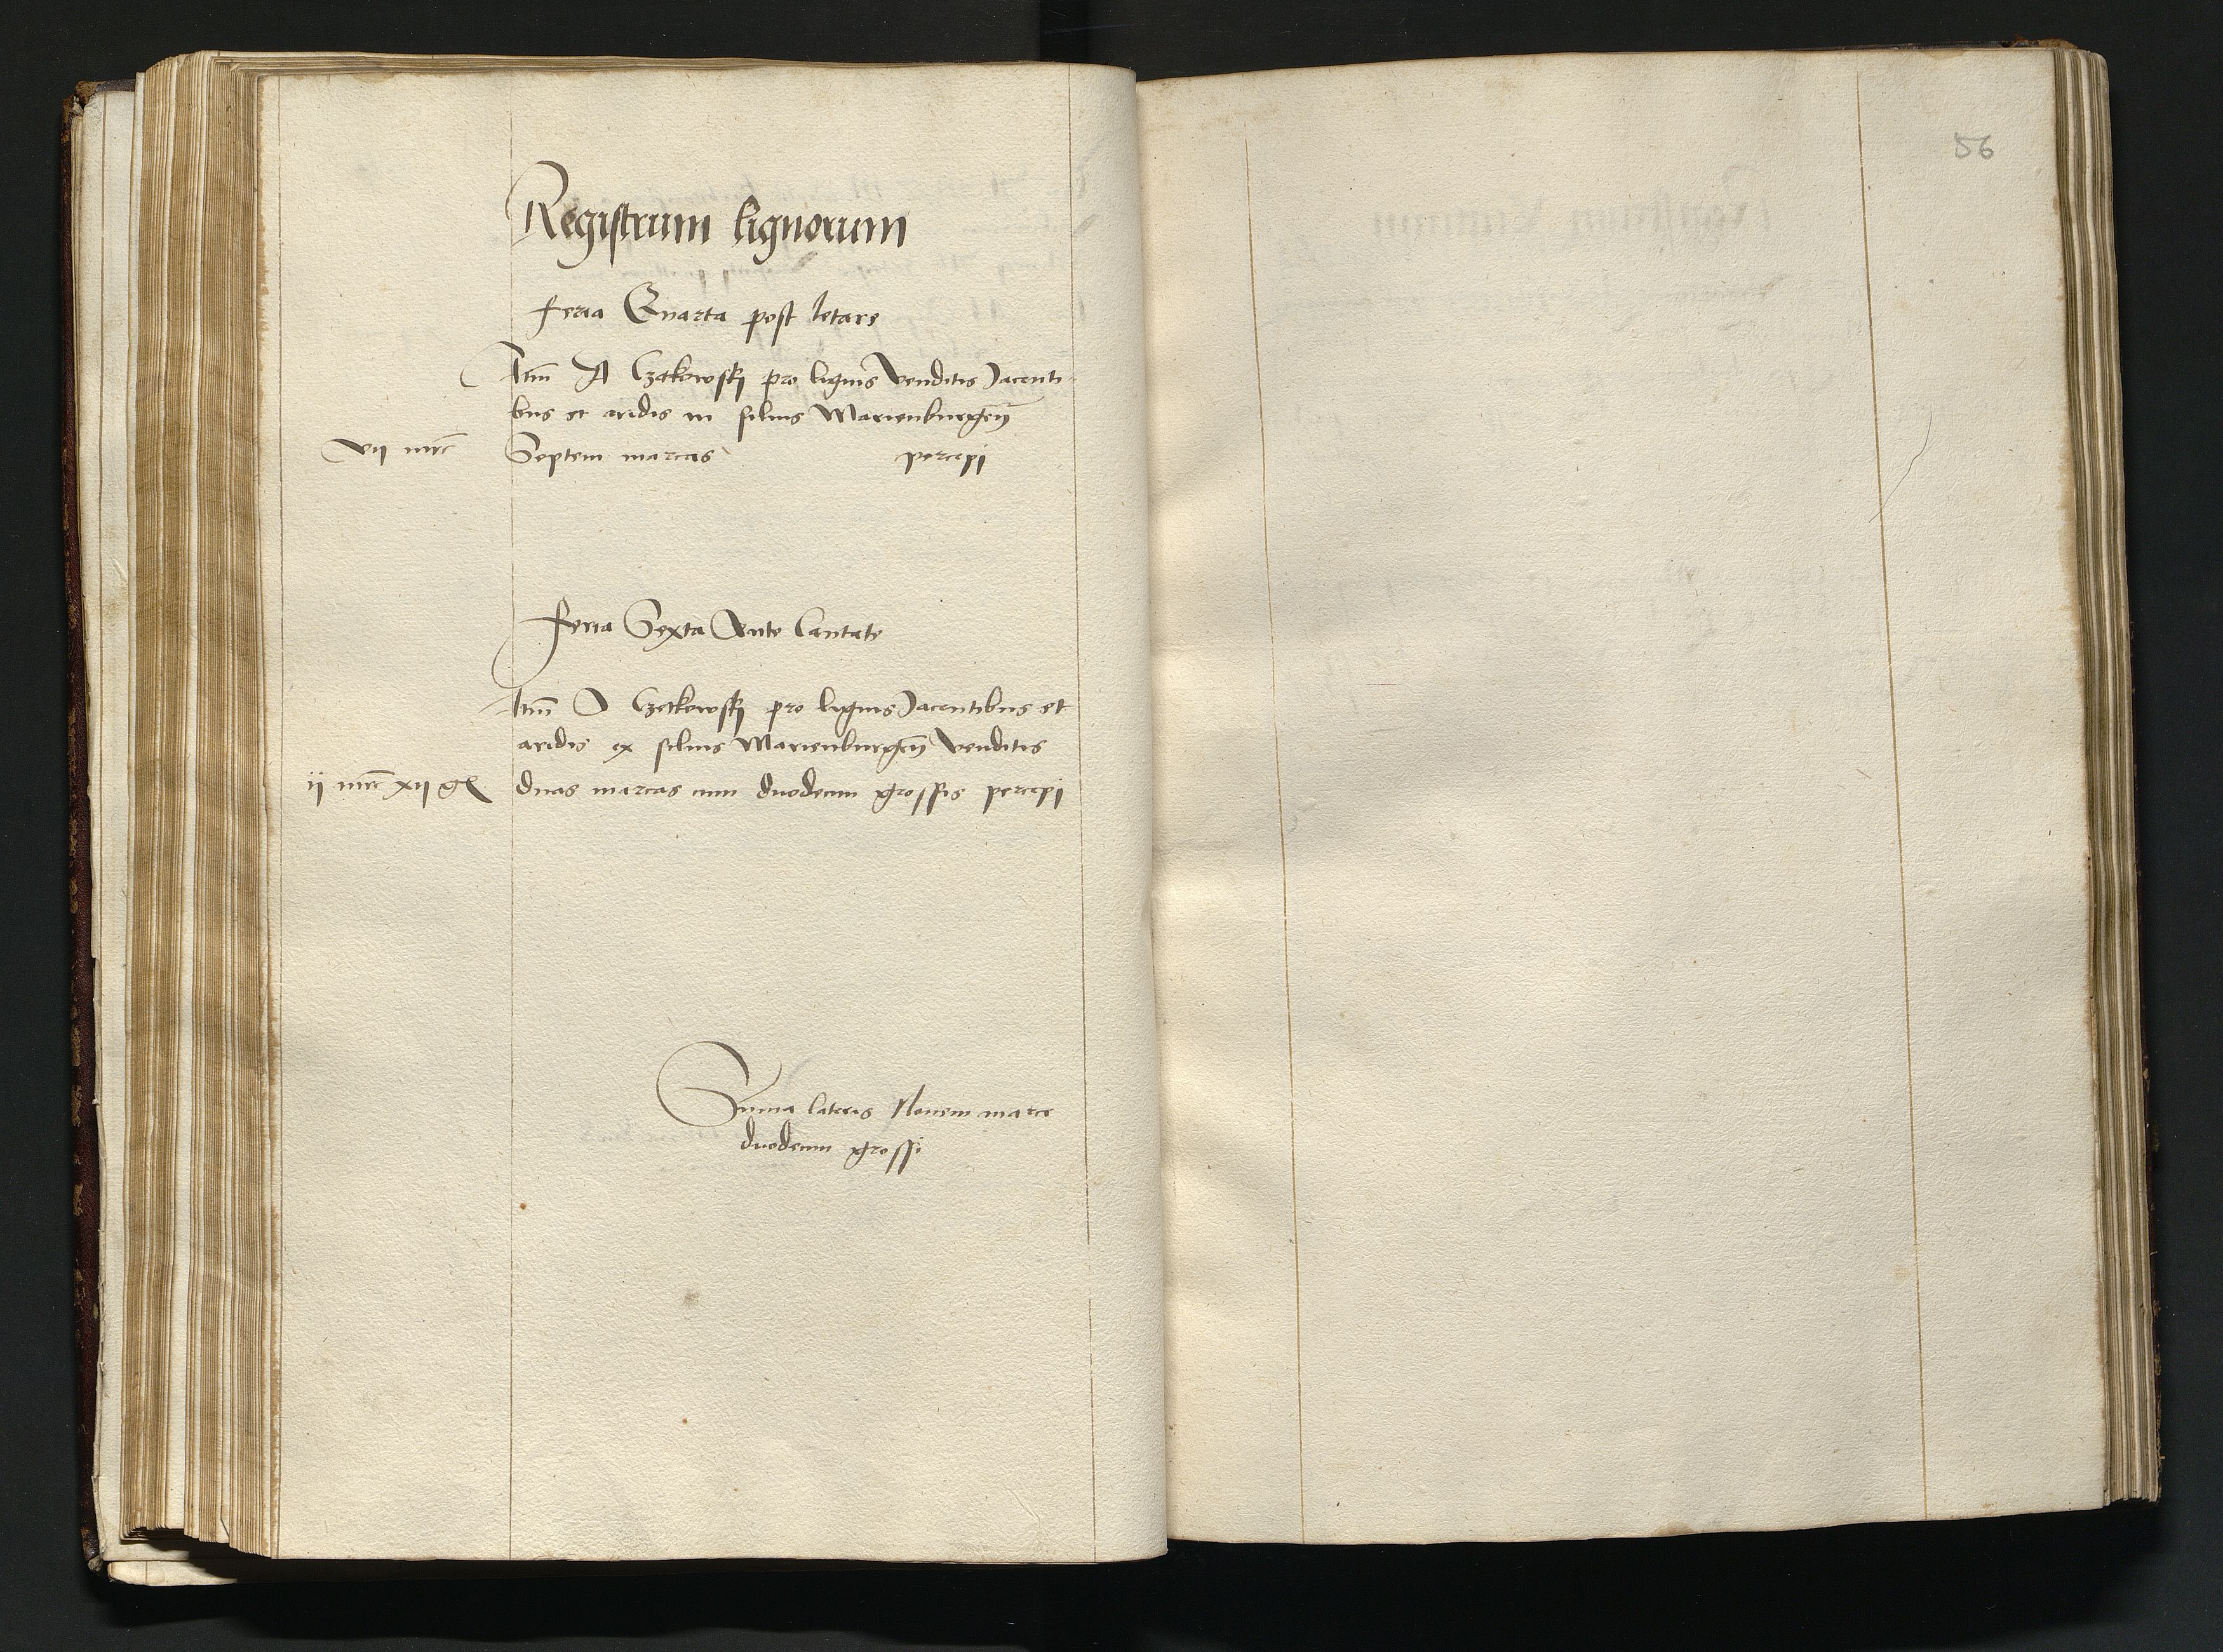 Registrum lignorum
feria Quarta post letare
Itm A Czetkowskj pro lignis venditis Jacenti
bus et aridis in siluis Marienburgen
vij mrc Septem marcas percepi
feria Sexta Ante Cantate
Itm A Czetkowskj pro lignis Jacentibus et
aridis ex siluis Marienburgen venditis
ij mrc xij gr duas marcas cum duodecim grossis percepi
Suma lateris Nouem marce
duodecim grossi
56